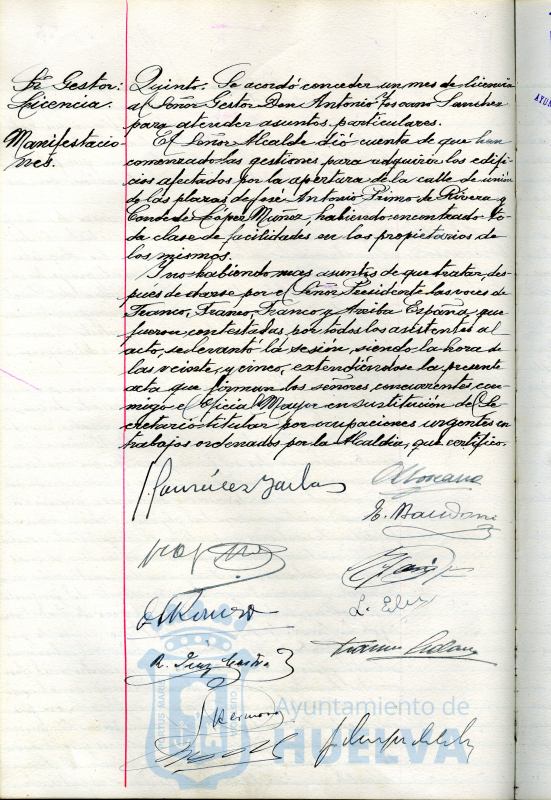 Sr. Gestor:
Licencia.
Manifestacio-
nes.
Quinto. Se acordó conceder un mes de licencia
al Señor Gestor Don Antonio Toscano Sanchez
para atender asuntos particulares.
El Señor Alcalde dió cuenta de que han
comenzado las gestiones para adquirir los edifi-
cios afectados por la apertura de la calle de unión
de las plazas de José Antonio Primo de Rivera y
Conde de Lopez Muñoz, habiendo encontrado to-
da clase de facilidades en los propietarios de
los mismos.
Y no habiendo mas asuntos de que tratar, des-
pués de darse por el Señor Presidente las voces de
Franco, Franco, Franco y Arriba España, que
fueron contestadas por todos los asistentes al
acto, se levantó la sesión, siendo la hora de
las veinte y cinco, extendiéndose la presente
acta que firman los señores concurrentes, con-
migo el Oficial Mayor en sustitución del Se-
cretario titular por ocupaciones urgentes en
trabajos ordenados por la Alcaldía, que certifico.
Ayuntamiento de
HUELVA